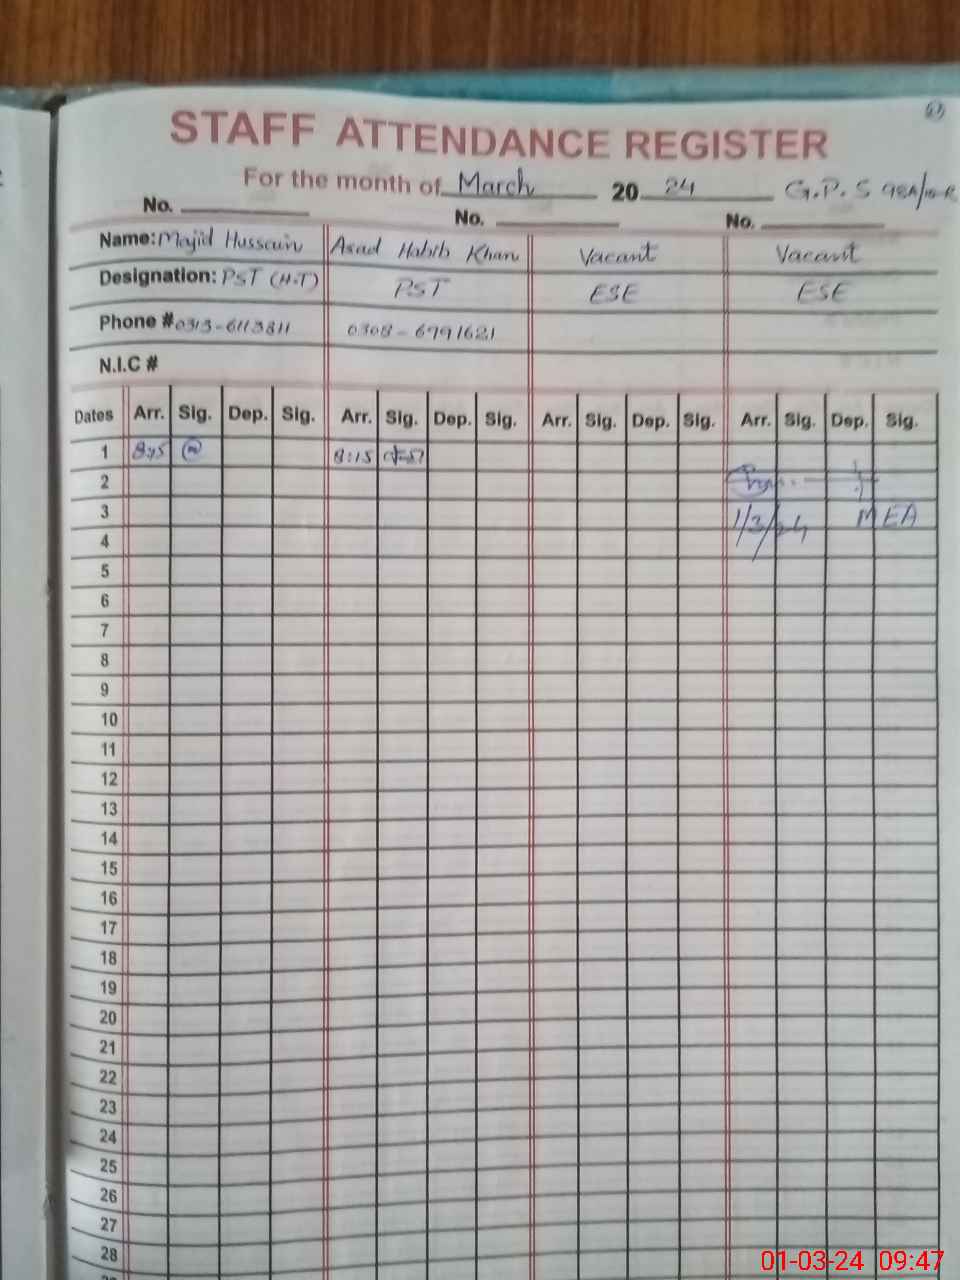 STAFF ATTENDANCE REGISTER
For the month of March 2024 G.P.S 98A/10-R
No. No. No.
Name: Majid Hussain Asad Habib Khan Vacant Vacant
Designation: PST (H.T) PST ESE ESE
Phone # 0313-6113811 0308-6991621
N.I.C #
Dates Arr. Sig. Dep. Sig. Arr. Sig. Dep. Sig. Arr. Sig. Dep. Sig. Arr. Sig. Dep. Sig.
1 8:15 8:15
2
3 1/3/24 MEA
4
5
6
7
8
9
10
11
12
13
14
15
16
17
18
19
20
21
22
23
24
25
26
27
28
01-03-24 09:47